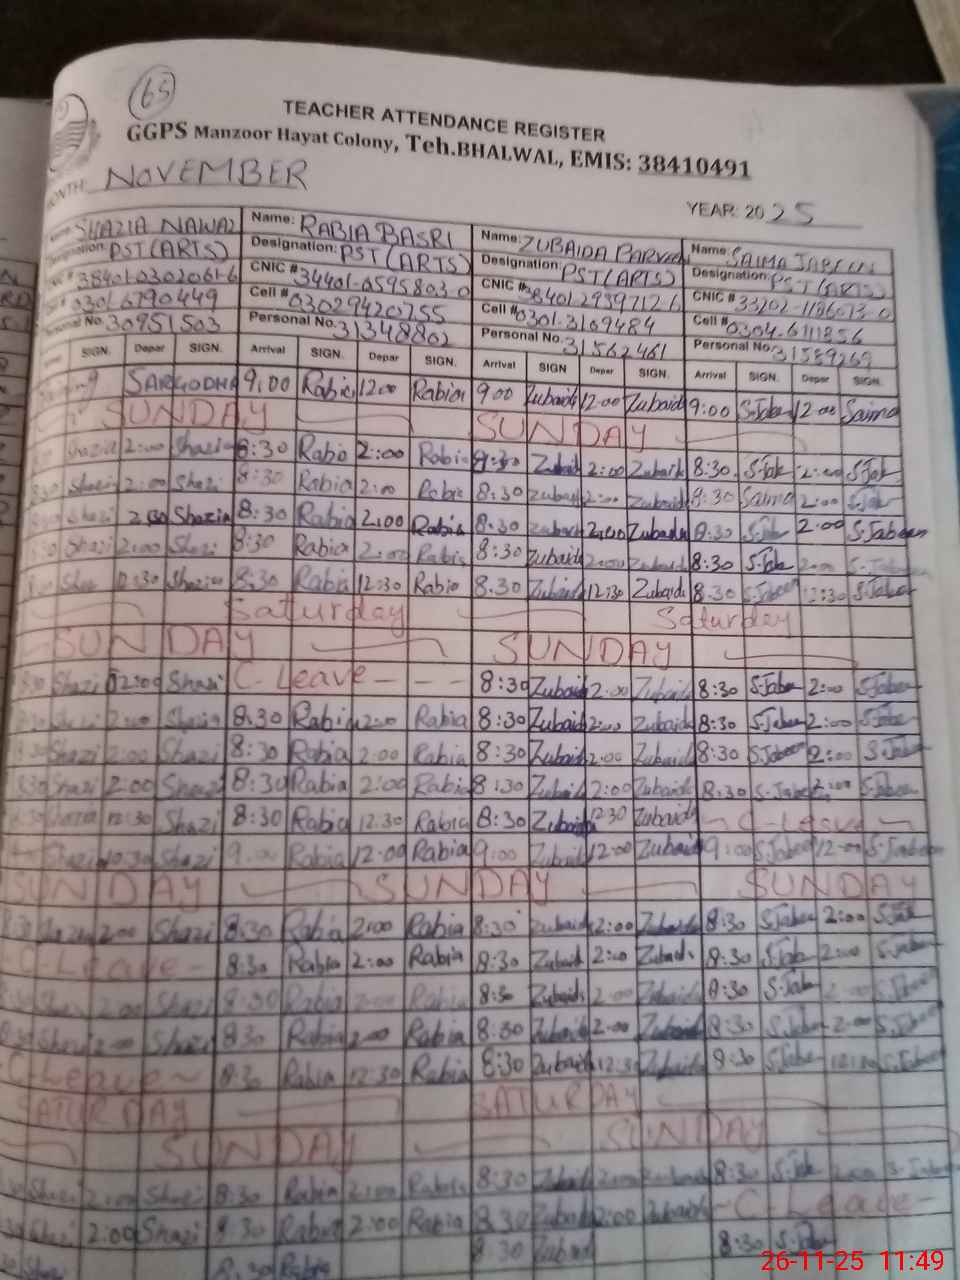 65
TEACHER ATTENDANCE REGISTER
GGPS Manzoor Hayat Colony, Teh.BHALWAL, EMIS: 38410491
MONTH: NOVEMBER YEAR: 2025
SHAZIA NAWAZ Name: RABIA BASRI Name: ZUBAIDA PARVEEN Name: SAIMA JABEEN
Designation: PST(ARTS) Designation: PST(ARTS) Designation: PST(ARTS) Designation: PST(ARTS)
# 38401-0302061-6 CNIC # 34401-0595803-0 CNIC # 38401-2939712-6 CNIC # 33202-1186073-0
0301-6790449 Cell # 03029420755 Cell # 0301-3109484 Cell # 0304-6111856
Personal No. 30951503 Personal No. 31348802 Personal No. 31562461 Personal No. 31589269
SIGN. Depar SIGN. Arrival SIGN. Depar SIGN. Arrival SIGN Depar SIGN. Arrival SIGN. Depar SIGN.
SARGODHA 9:00 Rabia 12:00 Rabia 9:00 Zubaida 12:00 Zubaida 9:00 S.Jabe 12:00 Saima
SUNDAY SUNDAY
Shazia 2:00 Shazia 8:30 Rabia 2:00 Rabia 8:30 Zubaid 2:00 Zubaid 8:30 S.Jab 2:00 S.Jab
8:30 Shazi 2:00 Shazi 8:30 Rabia 2:00 Rabia 8:30 Zubaid 2:00 Zubaida 8:30 Saima 2:00 S.Jabe
Shazi 2:00 Shazia 8:30 Rabia 2:00 Rabia 8:30 Zubaid 2:00 Zubaida 8:30 S.Jab 2:00 S.Jabeen
Shazi 2:00 Shazi 8:30 Rabia 2:00 Rabia 8:30 Zubaida 2:00 Zubaida 8:30 S.Jab 2:00 S.Jabeen
8:30 Shaz 12:30 Shazia 8:30 Rabia 12:30 Rabia 8:30 Zubaida 12:30 Zubaida 8:30 S.Jabeen 12:30 S.Jabee
Saturday Saturday
SUNDAY SUNDAY
8:30 Shazi 2:00 Shazi C-Leave 8:30 Zubaid 2:00 Zubaida 8:30 S.Jabe 2:00 S.Jabee
8:30 Shazi 2:00 Shazia 8:30 Rabia 2:00 Rabia 8:30 Zubaid 2:00 Zubaida 8:30 S.Jabee 2:00 S.Jabe
8:30 Shazi 2:00 Shazi 8:30 Rabia 2:00 Rabia 8:30 Zubaid 2:00 Zubaid 8:30 S.Jabeen 2:00 S.Jabe
8:30 Shazi 2:00 Shazi 8:30 Rabia 2:00 Rabia 8:30 Zubaid 2:00 Zubaida 8:30 S.Jabe 2:00 S.Jabee
8:30 Shazia 12:30 Shazi 8:30 Rabia 12:30 Rabia 8:30 Zubaida 12:30 Zubaida C-Leave
Shazi Shazi 9:00 Rabia 12:00 Rabia 9:00 Zubaid 12:00 Zubaida 9:00 S.Jabee 12:00 S.Jabeen
SUNDAY SUNDAY SUNDAY
8:30 2:00 Shazi 8:30 Rabia 2:00 Rabia 8:30 Zubaida 2:00 Zubaida 8:30 S.Jabee 2:00 S.Jab
C-Leave 8:30 Rabia 2:00 Rabia 8:30 Zubaid 2:00 Zubaida 8:30 S.Jab 2:00 S.Jabee
8:30 Shazi 2:00 Shazi 8:30 Rabia 2:00 Rabia 8:30 Zubaida 2:00 Zubaida 8:30 S.Jab 2:00
8:30 Shazi 2:00 Shazi 8:30 Rabia 2:00 Rabia 8:30 Zubaid 2:00 Zubaida 8:30 S.Jabe 2:00
C-Leave 8:30 Rabia 12:30 Rabia 8:30 Zubaida 12:30 Zubaida 8:30 S.Jabee 12:30 S.Jabee
SATURDAY SATURDAY
SUNDAY SUNDAY
Shazi 2:00 Shazi 8:30 Rabia 2:00 Rabia 8:30 Zubaid 2:00 Zubaida 8:30 S.Jab 2:00 S.Jabee
8:30 Shazi 2:00 Shazi 8:30 Rabia 2:00 Rabia 8:30 Zubaid 2:00 Zubaida C-Leave
8:30 Shazi 8:30 Rabia 8:30 Zubaid 8:30 S.Jabe
26-11-25 11:49